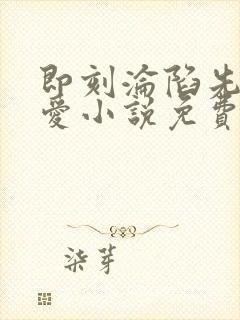 即刻淪陷先
愛小說免費
柒芽